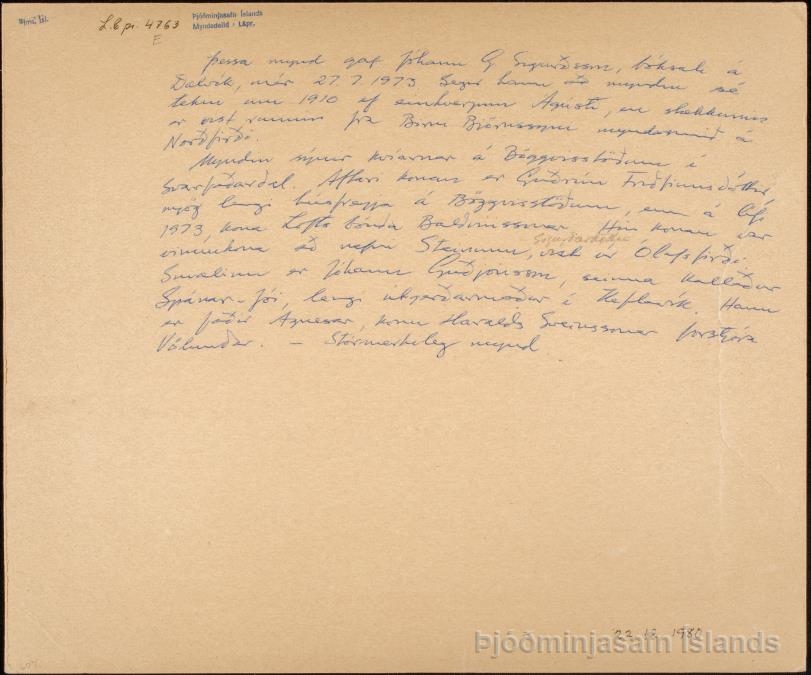 L.b.pr. 4763
E
Þjóðminjasafn Íslands
Myndadeild - L&pr.
Þessa mynd gaf Jóhann G. Sigurðsson, bóksali á
Dalvík, mér 27.7.1973. Segir hann að myndin sé
tekin um 1910 af einhverjum Ágústi, en stækkunin
er víst runnin frá Birni Björnssyni myndasmið á
Norðfirði.
Myndin sýnir kvíarnar á Böggvisstöðum í
Svarfaðardal. Aftari konan er Guðrún Friðfinnsdóttir
mjög lengi húsfreyja á Böggvisstöðum, enn á lífi
1973, kona Lofts bónda Baldvinssonar. Hin konan var
vinnukona að nafni Steinunn, víst úr Ólafsfirði.
Sigurðardóttir
Smalinn er Jóhann Guðjónsson, seinna kallaður
Spánar-Jói, lengi útgerðarmaður í Keflavík. Hann
er faðir Agnesar, konu Haralds Sveinssonar forstjóra
Völundar. – Stórmerkileg mynd.
Þjóðminjasafn Íslands